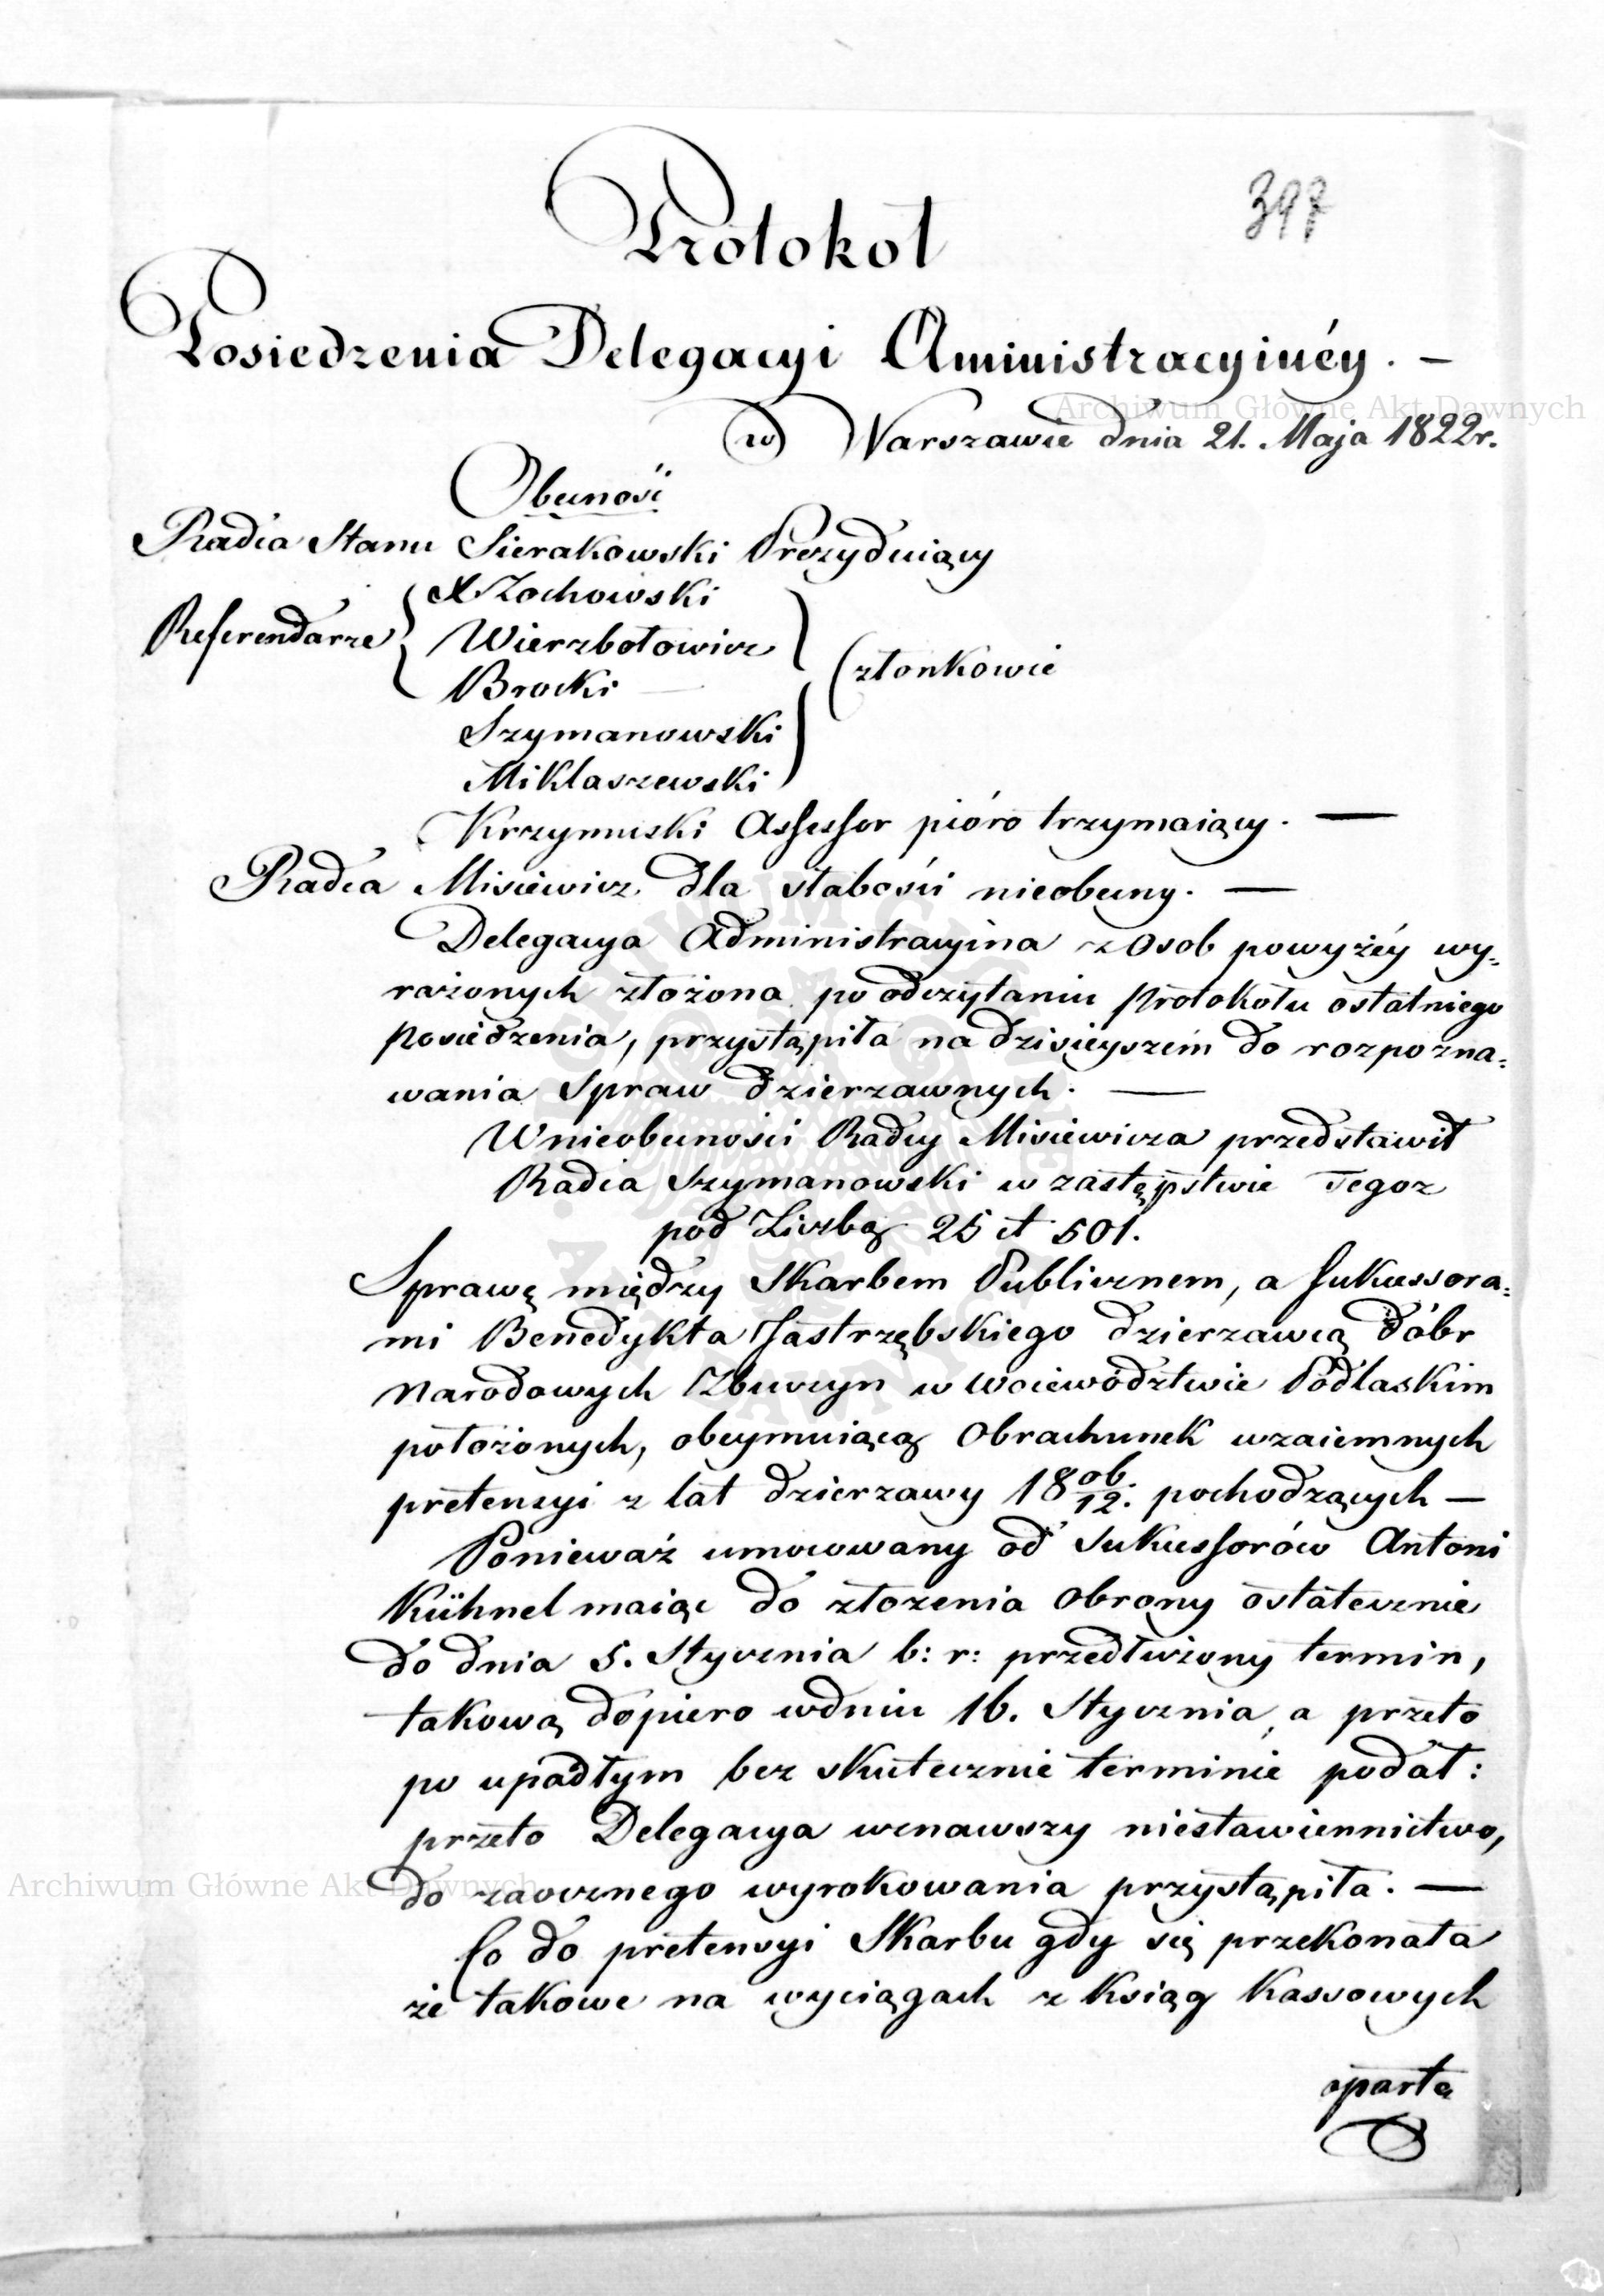 397
Protokoł
Posiedzenia Delegacyi Aministracyinéy. —
w Warszawie dnia 21. Maja 1822r.
Obecności
Radca Stanu Sierakowski Prezyduiący
Referendarze { X Zochowski
Wierzbołowicz
Brocki — } Członkowie
Szymanowski
Miklaszewski
Krzymuski Assessor pióro trzymaiący. —
Radca Misiewicz dla słabości nieobecny. —
Delegacya Administracyina z Osob powyżéy wy-
rażonych złożona po odczytaniu protokołu ostatniego
posiedzenia, przystąpiła na dzisieyszém do rozpozna-
wania Spraw dzierzawnych. —
W nieobecności Radcy Misiewicza przedstawił
Radca Szymanowski w zastępstwie Tegoz
pod Liczbą 25 et 501.
Sprawę między Skarbem Publicznem, a Sukcessora-
mi Benedykta Jastrzębskiego dzierzawcą dóbr
Narodowych Zbuczyn w Woiewództwie Podlaskim
położonych, obeymuiącą Obrachunek wzaiemnych
pretensyi z lat dzierzawy 18 06/12. pochodzących —
Ponieważ umocowany od Sukcessorów Antoni
Kühnel maiąc do złozenia Obrony ostatecznie
do dnia 5. Stycznia b: r: przedłużony termin,
takową dopiero w dniu 16. Stycznia, a przeto
po upadłym bez skutecznie terminie podał:
przeto Delegacya uznawszy niestawiennictwo,
do zaocznego wyrokowania przystąpiła. —
Co do pretensyi Skarbu gdy się przekonała
że takowe na wyciągach z Ksiąg Kassowych
oparte
Archiwum Główne Akt Dawnych
Archiwum Główne Akt Dawnych